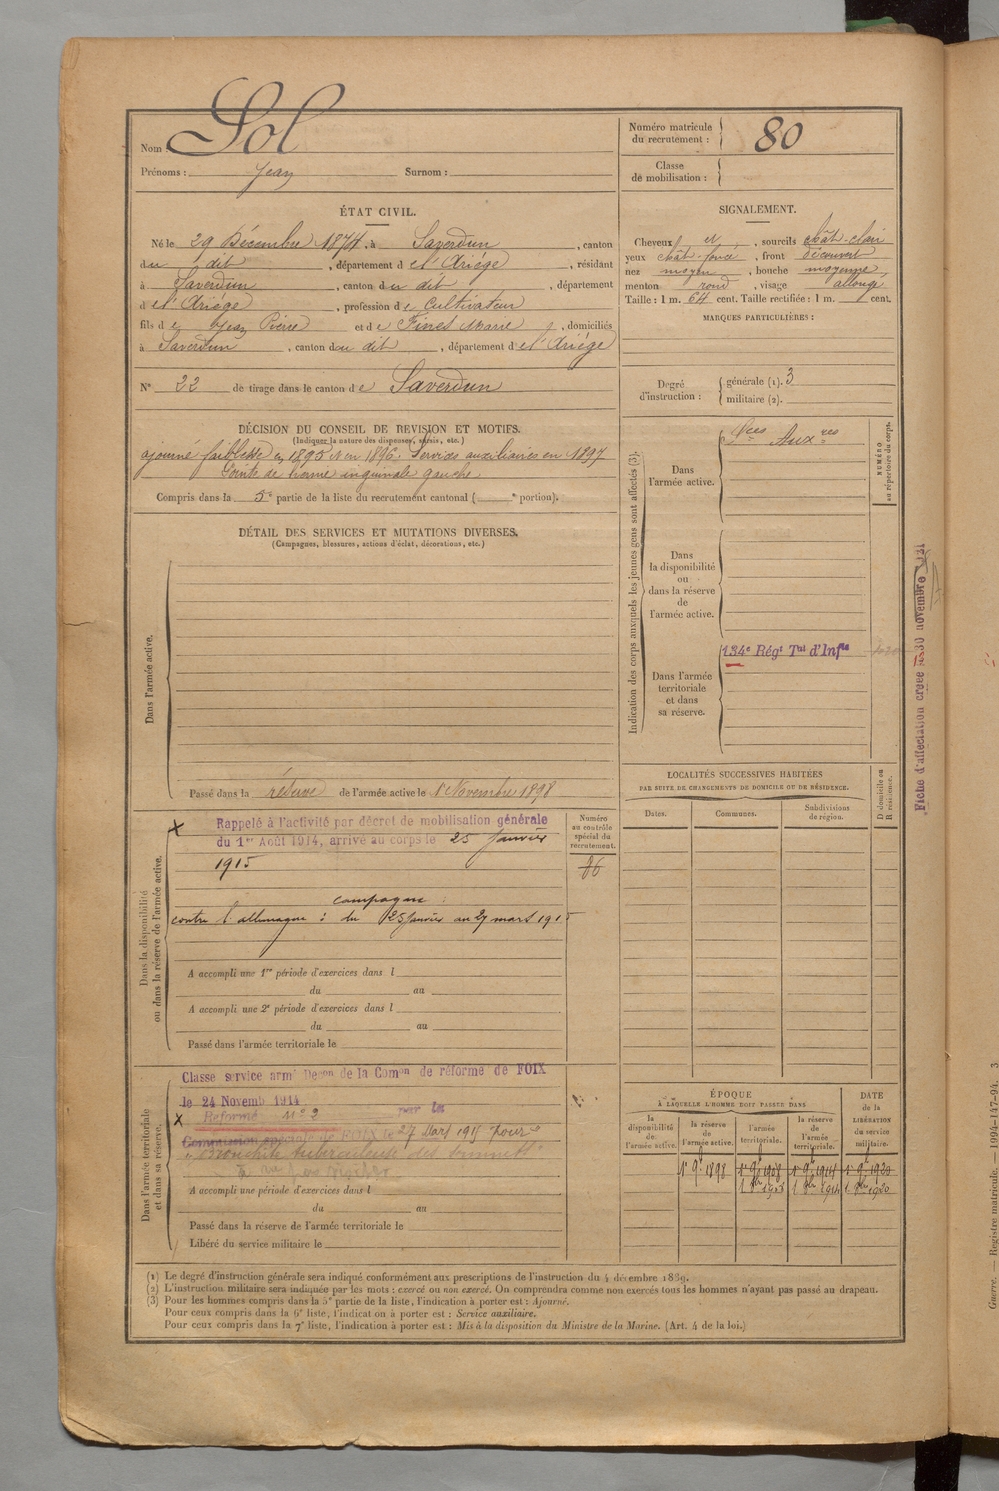 Nom : Sol
Prénoms : Jean Surnom :
Numéro matricule
du recrutement : 80
Classe
de mobilisation :
ÉTAT CIVIL.
Né le 29 Décembre 1874, à Saverdun, canton
du dit, département de l'Ariége, résidant
à Saverdun, canton du dit, département
de l'Ariége, profession de Cultivateur
fils de Jean Pierre et de Finès Marie, domiciliés
à Saverdun, canton du dit, département de l'Ariége
N° 22 de tirage dans le canton de Saverdun
SIGNALEMENT.
Cheveux et, sourcils chât-clair
yeux chât-foncé, front découvert
nez moyen, bouche moyenne,
menton rond, visage allongé
Taille : 1 m. 64 cent. Taille rectifiée : 1 m. cent.
MARQUES PARTICULIÈRES :
Degré
d'instruction :
générale (1). 3
militaire (2).
DÉCISION DU CONSEIL DE REVISION ET MOTIFS.
(Indiquez la nature des dispenses, sursis, etc.)
ajourné faiblesse en 1895 et en 1896. Services auxiliaires en 1897
Pointe de hernie inguinale gauche
Compris dans la 5e partie de la liste du recrutement cantonal ( e portion).
DÉTAIL DES SERVICES ET MUTATIONS DIVERSES.
(Campagnes, blessures, actions d'éclat, décorations, etc.)
Dans l'armée active.
Passé dans la réserve de l'armée active le 1er Novembre 1898
Indication des corps auxquels les jeunes gens sont affectés (3).
NUMÉRO
au répertoire du corps.
Dans
l'armée active.
Sces Auxres
Dans
la disponibilité
ou
dans la réserve
de
l'armée active.
134e Régt Tal d'Infie
Dans l'armée
territoriale
et dans
sa réserve.
Fiche d'affectation créée le 30 novembre
LOCALITÉS SUCCESSIVES HABITÉES
PAR SUITE DE CHANGEMENTS DE DOMICILE OU DE RÉSIDENCE.
Dates.
Communes.
Subdivisions
de région.
D domicile ou
R résidence.
Dans la disponibilité
ou dans la réserve de l'armée active.
Rappelé à l'activité par décret de mobilisation générale
du 1er Août 1914, arrivé au corps le 25 Janvier
1915
campagne :
contre l'allemagne : du 25 Janvier au 27 mars 1915
Numéro
au contrôle
spécial du
recrutement.
86
A accompli une 1re période d'exercices dans l
du au
A accompli une 2e période d'exercices dans l
du au
Passé dans l'armée territoriale le
Dans l'armée territoriale
et dans sa réserve.
Classe service armé Décon de la Comon de réforme de FOIX
le 24 Novemb 1914
Réformé N° 2 par la
Commission spéciale de FOIX le 27 Mars 1915 pour
"Bronchite tuberculeuse des sommets"
A accompli une période d'exercices dans l
du au
Passé dans la réserve de l'armée territoriale le
Libéré du service militaire le
ÉPOQUE
À LAQUELLE L'HOMME DOIT PASSER DANS
la
disponibilité
de
l'armée active.
la réserve
de
l'armée active.
l'armée
territoriale.
la réserve
de
l'armée
territoriale.
DATE
de la
LIBÉRATION
du service
militaire.
1er 9bre 1898 1er 9bre 1908 1er 9bre 1914 1er 9bre 1920
1 8bre 1908 1 8bre 1914 1 8bre 1920
(1) Le degré d'instruction générale sera indiqué conformément aux prescriptions de l'instruction du 4 décembre 1889.
(2) L'instruction militaire sera indiquée par les mots : exercé ou non exercé. On comprendra comme non exercés tous les hommes n'ayant pas passé au drapeau.
(3) Pour les hommes compris dans la 5e partie de la liste, l'indication à porter est : Ajourné.
Pour ceux compris dans la 6e liste, l'indication à porter est : Service auxiliaire.
Pour ceux compris dans la 7e liste, l'indication à porter est : Mis à la disposition du Ministre de la Marine. (Art. 4 de la loi.)
Guerre. — Registre matricule. — 1094-147-94. 3